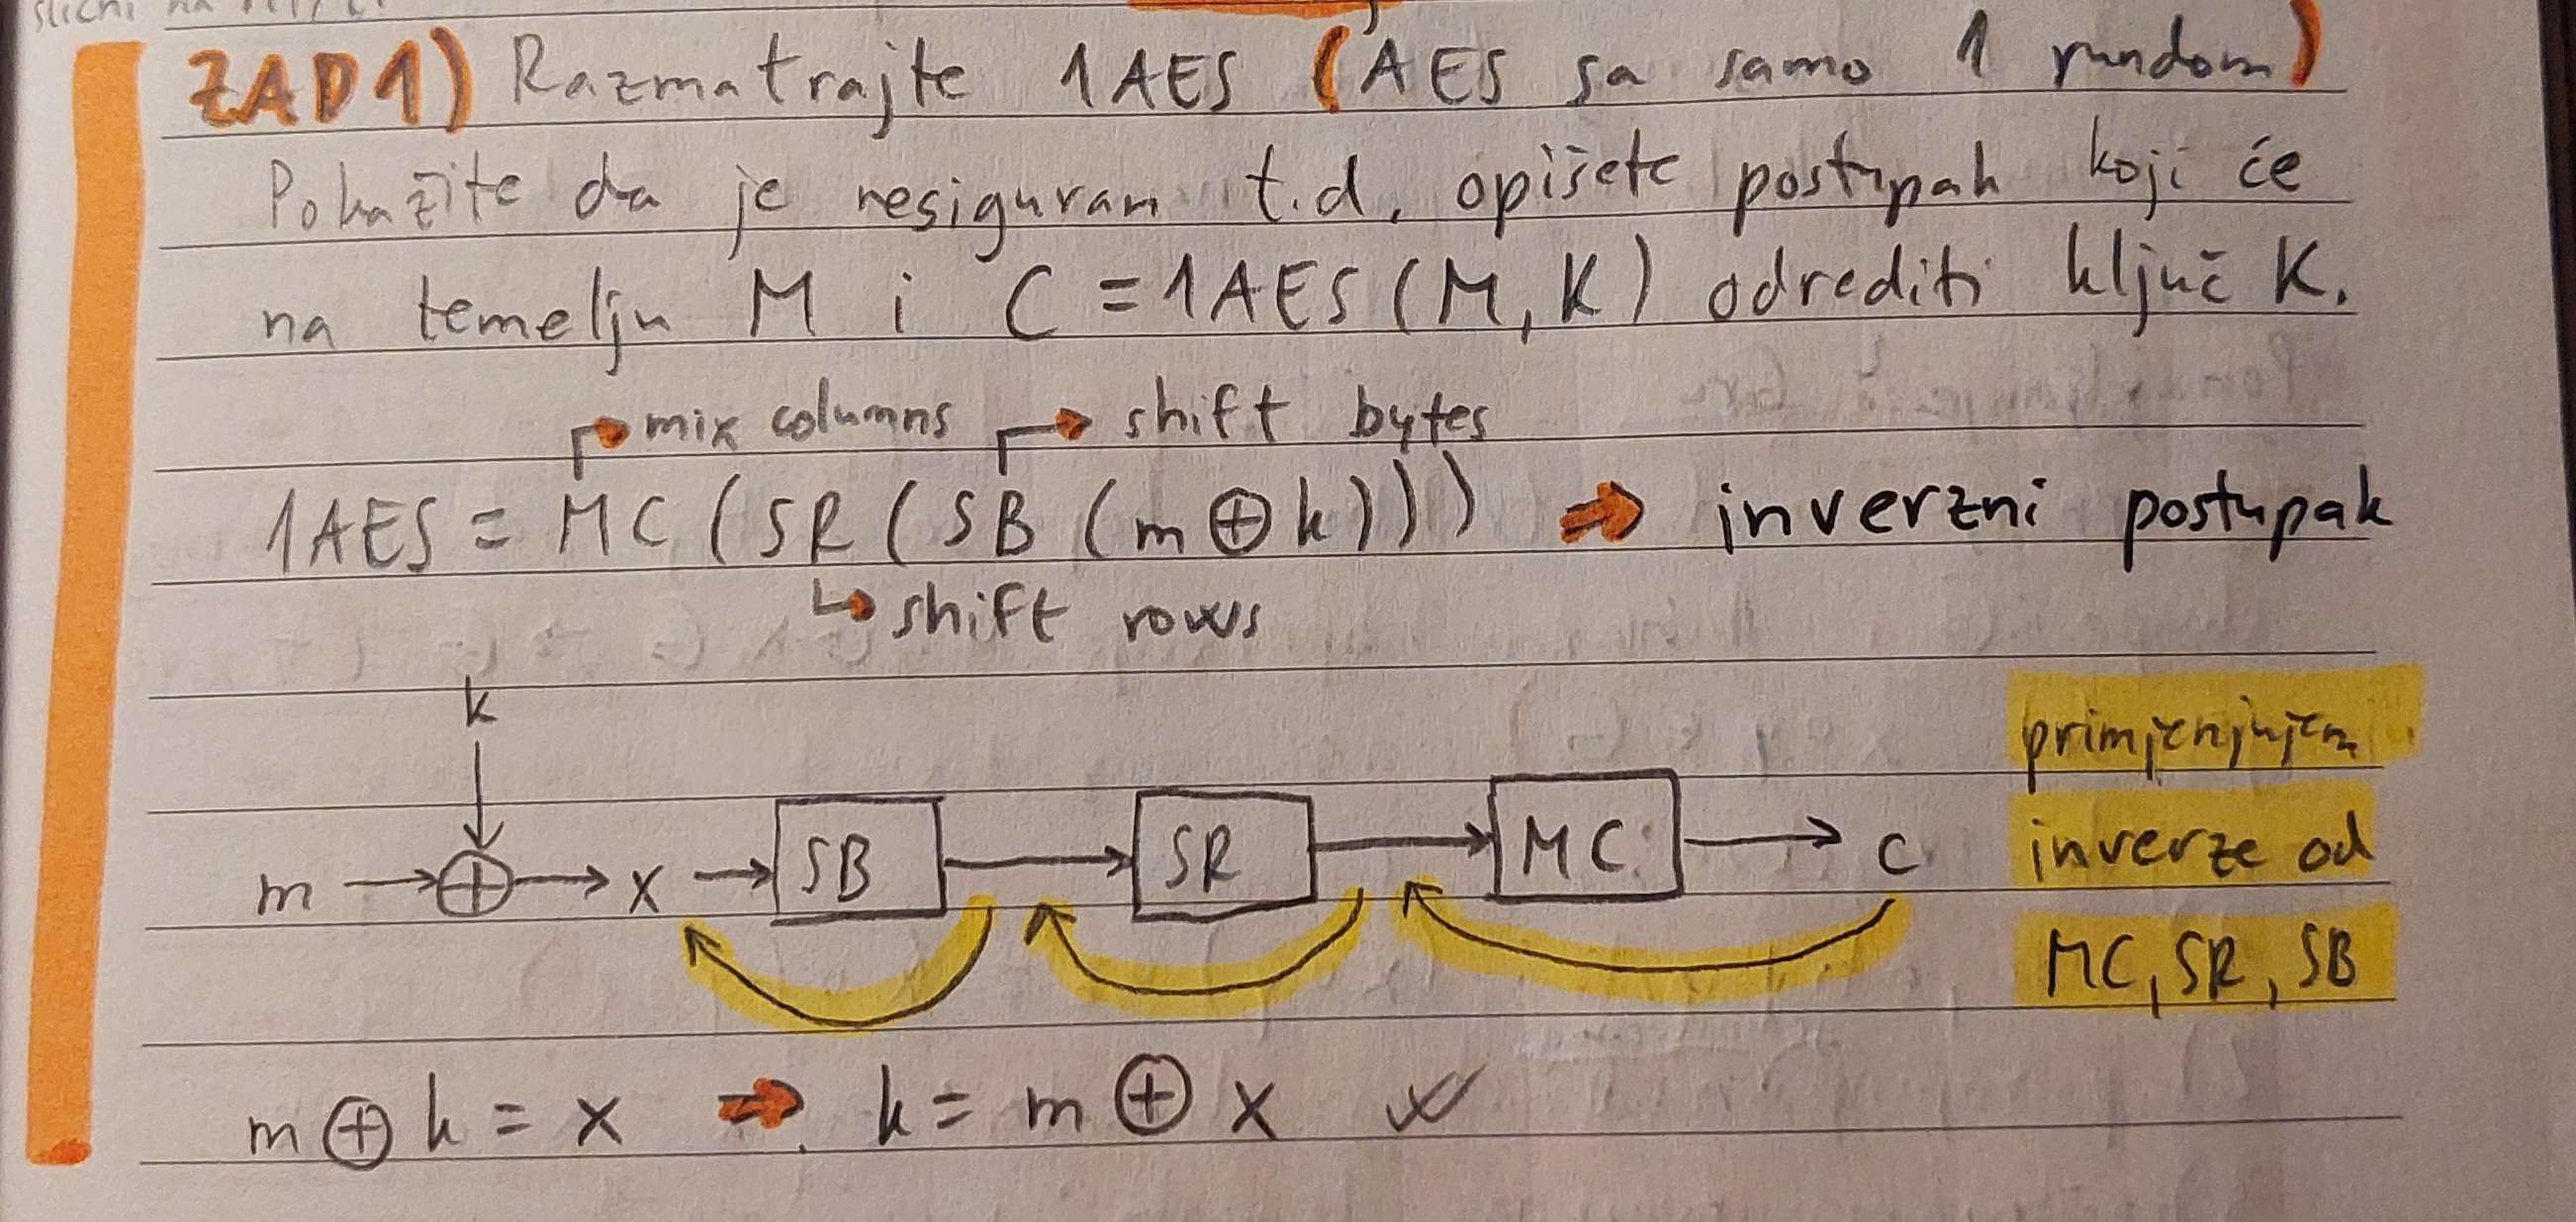 ZAD 1) Razmatrajte 1AES (AES sa samo 1 rundom)
Pokažite da je nesiguran t.d. opišete postupak koji će
na temelju M i C = 1AES(M, K) odrediti ključ K.
mix columns shift bytes
1AES = MC (SR (SB (m ⊕ k))) ⇒ inverzni postupak
shift rows
k
primjenjujem
m ⊕ x SB SR MC c inverze od
MC, SR, SB
m ⊕ k = x ⇒ k = m ⊕ x